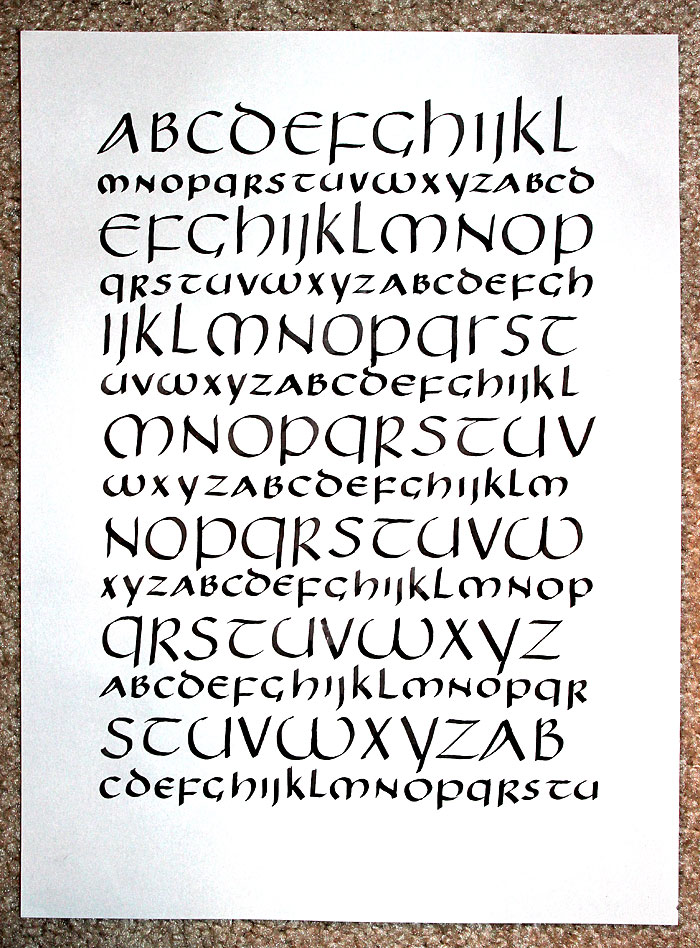 ABCDEFGHIJKL
MNOPQRSTUVWXYZABCD
EFGHIJKLMNOP
QRSTUVWXYZABCDEFGH
IJKLMNOPQRST
UVWXYZABCDEFGHIJKL
MNOPQRSTUV
WXYZABCDEFGHIJKLM
NOPQRSTUVW
XYZABCDEFGHIJKLMNOP
QRSTUVWXYZ
ABCDEFGHIJKLMNOPQR
STUVWXYZAB
CDEFGHIJKLMNOPQRSTU